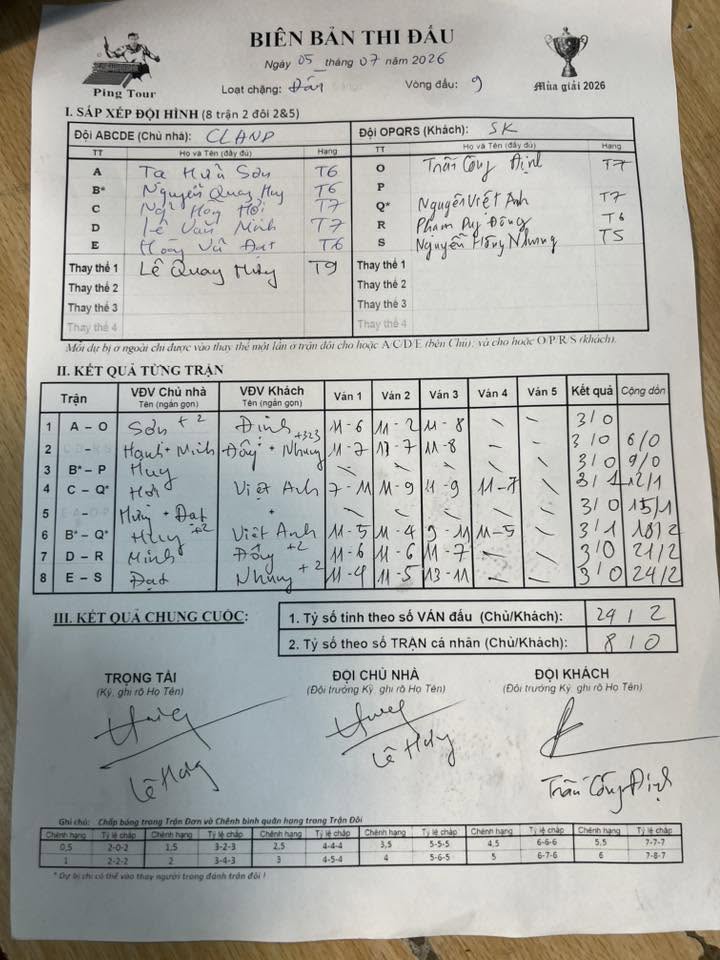 BIÊN BẢN THI ĐẤU
Ngày 05 tháng 07 năm 2026
Ping Tour
Loại chặng: Đấu Vòng đấu: 9
Mùa giải 2026
I. SẮP XẾP ĐỘI HÌNH (8 trận 2 đôi 2&5)
Đội ABCDE (Chủ nhà): CLAND Đội OPQRS (Khách): SK
TT Họ và Tên (đầy đủ) Hạng TT Họ và Tên (đầy đủ) Hạng
A Tạ Hữu Sơn T6 O Trần Công Định T7
B* Nguyễn Quang Huy T6 P
C Ngô Hồng Hơi T7 Q* Nguyễn Việt Anh T7
D Lê Văn Minh T7 R Phạm Duy Đông T6
E Hoàng Vũ Đạt T6 S Nguyễn Hồng Nhung T5
Thay thế 1 Lê Quang Hưng T9 Thay thế 1
Thay thế 2 Thay thế 2
Thay thế 3 Thay thế 3
Thay thế 4 Thay thế 4
Mỗi dự bị ở ngoài chỉ được vào thay thế một lần ở trận đôi cho hoặc A/C/D/E (bên Chủ); và cho hoặc O/P/R/S (khách).
II. KẾT QUẢ TỪNG TRẬN
Trận VĐV Chủ nhà Tên (ngắn gọn) VĐV Khách Tên (ngắn gọn) Ván 1 Ván 2 Ván 3 Ván 4 Ván 5 Kết quả Cộng dồn
1 A – O Sơn +2 Định 11-6 11-2 11-8 \ \ 3/0
2 + Minh Đông + Nhung +323 11-7 13-7 11-8 \ \ 3/0 6/0
3 B* – P Huy \ \ \ \ \ 3/0 9/0
4 C – Q* Hơi Việt Anh 7-11 11-9 11-9 11-7 \ 3/1 12/1
5 - Hưng + Đạt + \ \ \ \ \ 3/0 15/1
6 B* – Q* Huy +2 Việt Anh 11-5 11-4 9-11 11-5 \ 3/1 18/2
7 D – R Minh Đông +2 11-6 11-6 11-7 \ \ 3/0 21/2
8 E – S Đạt Nhung +2 11-4 11-5 13-11 \ \ 3/0 24/2
III. KẾT QUẢ CHUNG CUỘC:
1. Tỷ số tính theo số VÁN đấu (Chủ/Khách): 24/2
2. Tỷ số theo số TRẬN cá nhân (Chủ/Khách): 8/0
TRỌNG TÀI ĐỘI CHỦ NHÀ ĐỘI KHÁCH
(Ký, ghi rõ Họ Tên) (Đội trưởng Ký, ghi rõ Họ Tên) (Đội trưởng Ký, ghi rõ Họ Tên)
Lê Hưng Lê Hưng Trần Công Định
Ghi chú: Chấp bóng trong Trận Đơn và Chênh bình quân hạng trong Trận Đôi
Chênh hạng Tỷ lệ chấp Chênh hạng Tỷ lệ chấp Chênh hạng Tỷ lệ chấp Chênh hạng Tỷ lệ chấp Chênh hạng Tỷ lệ chấp Chênh hạng Tỷ lệ chấp
0,5 2-0-2 1,5 3-2-3 2,5 4-4-4 3,5 5-5-5 4,5 6-6-6 5,5 7-7-7
1 2-2-2 2 3-4-3 3 4-5-4 4 5-6-5 5 6-7-6 6 7-8-7
* Dự bị chỉ có thể vào thay người trong đánh trận đôi !